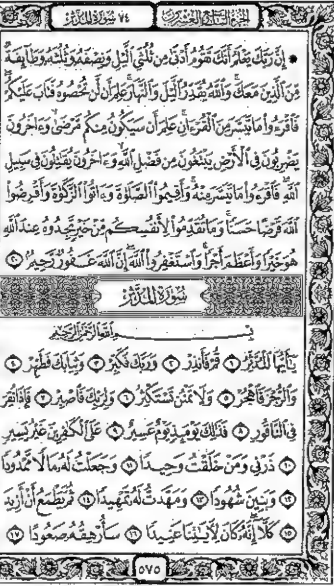 الجزء التاسع والعشرون ٧٤ سورة المدثر
۞ إِنَّ رَبَّكَ يَعْلَمُ أَنَّكَ تَقُومُ أَدْنَىٰ مِن ثُلُثَيِ الَّيْلِ وَنِصْفَهُۥ وَثُلُثَهُۥ وَطَآئِفَةٌ
مِّنَ الَّذِينَ مَعَكَۚ وَاللَّهُ يُقَدِّرُ الَّيْلَ وَالنَّهَارَۚ عَلِمَ أَن لَّن تُحْصُوهُ فَتَابَ عَلَيْكُمْۖ
فَاقْرَءُوا۟ مَا تَيَسَّرَ مِنَ الْقُرْءَانِۚ عَلِمَ أَن سَيَكُونُ مِنكُم مَّرْضَىٰۙ وَءَاخَرُونَ
يَضْرِبُونَ فِى الْأَرْضِ يَبْتَغُونَ مِن فَضْلِ اللَّهِۙ وَءَاخَرُونَ يُقَٰتِلُونَ فِى سَبِيلِ
اللَّهِۖ فَاقْرَءُوا۟ مَا تَيَسَّرَ مِنْهُۚ وَأَقِيمُوا۟ الصَّلَوٰةَ وَءَاتُوا۟ الزَّكَوٰةَ وَأَقْرِضُوا۟
اللَّهَ قَرْضًا حَسَنًاۚ وَمَا تُقَدِّمُوا۟ لِأَنفُسِكُم مِّنْ خَيْرٍ تَجِدُوهُ عِندَ اللَّهِ
هُوَ خَيْرًا وَأَعْظَمَ أَجْرًاۚ وَاسْتَغْفِرُوا۟ اللَّهَۖ إِنَّ اللَّهَ غَفُورٌ رَّحِيمٌۢ ٢٠
سورة المدثر
بِسْمِ اللَّهِ الرَّحْمَٰنِ الرَّحِيمِ
يَٰٓأَيُّهَا الْمُدَّثِّرُ ١ قُمْ فَأَنذِرْ ٢ وَرَبَّكَ فَكَبِّرْ ٣ وَثِيَابَكَ فَطَهِّرْ ٤
وَالرُّجْزَ فَاهْجُرْ ٥ وَلَا تَمْنُن تَسْتَكْثِرُ ٦ وَلِرَبِّكَ فَاصْبِرْ ٧ فَإِذَا نُقِرَ
فِى النَّاقُورِ ٨ فَذَٰلِكَ يَوْمَئِذٍ يَوْمٌ عَسِيرٌ ٩ عَلَى الْكَٰفِرِينَ غَيْرُ يَسِيرٍ
١٠ ذَرْنِى وَمَنْ خَلَقْتُ وَحِيدًا ١١ وَجَعَلْتُ لَهُۥ مَالًا مَّمْدُودًا
١٢ وَبَنِينَ شُهُودًا ١٣ وَمَهَّدتُّ لَهُۥ تَمْهِيدًا ١٤ ثُمَّ يَطْمَعُ أَنْ أَزِيدَ
١٥ كَلَّآۖ إِنَّهُۥ كَانَ لِءَايَٰتِنَا عَنِيدًا ١٦ سَأُرْهِقُهُۥ صَعُودًا ١٧
٥٧٥